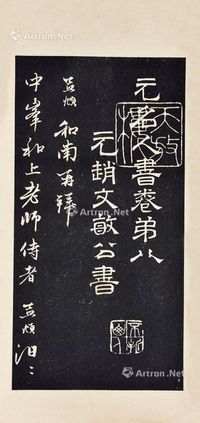 元人書卷弟八
元趙文敏公書
孟頫和南再拜
中峯和上老師侍者 孟頫
Artron.Net
Artron.Net
Artron.Net
Artron.Net